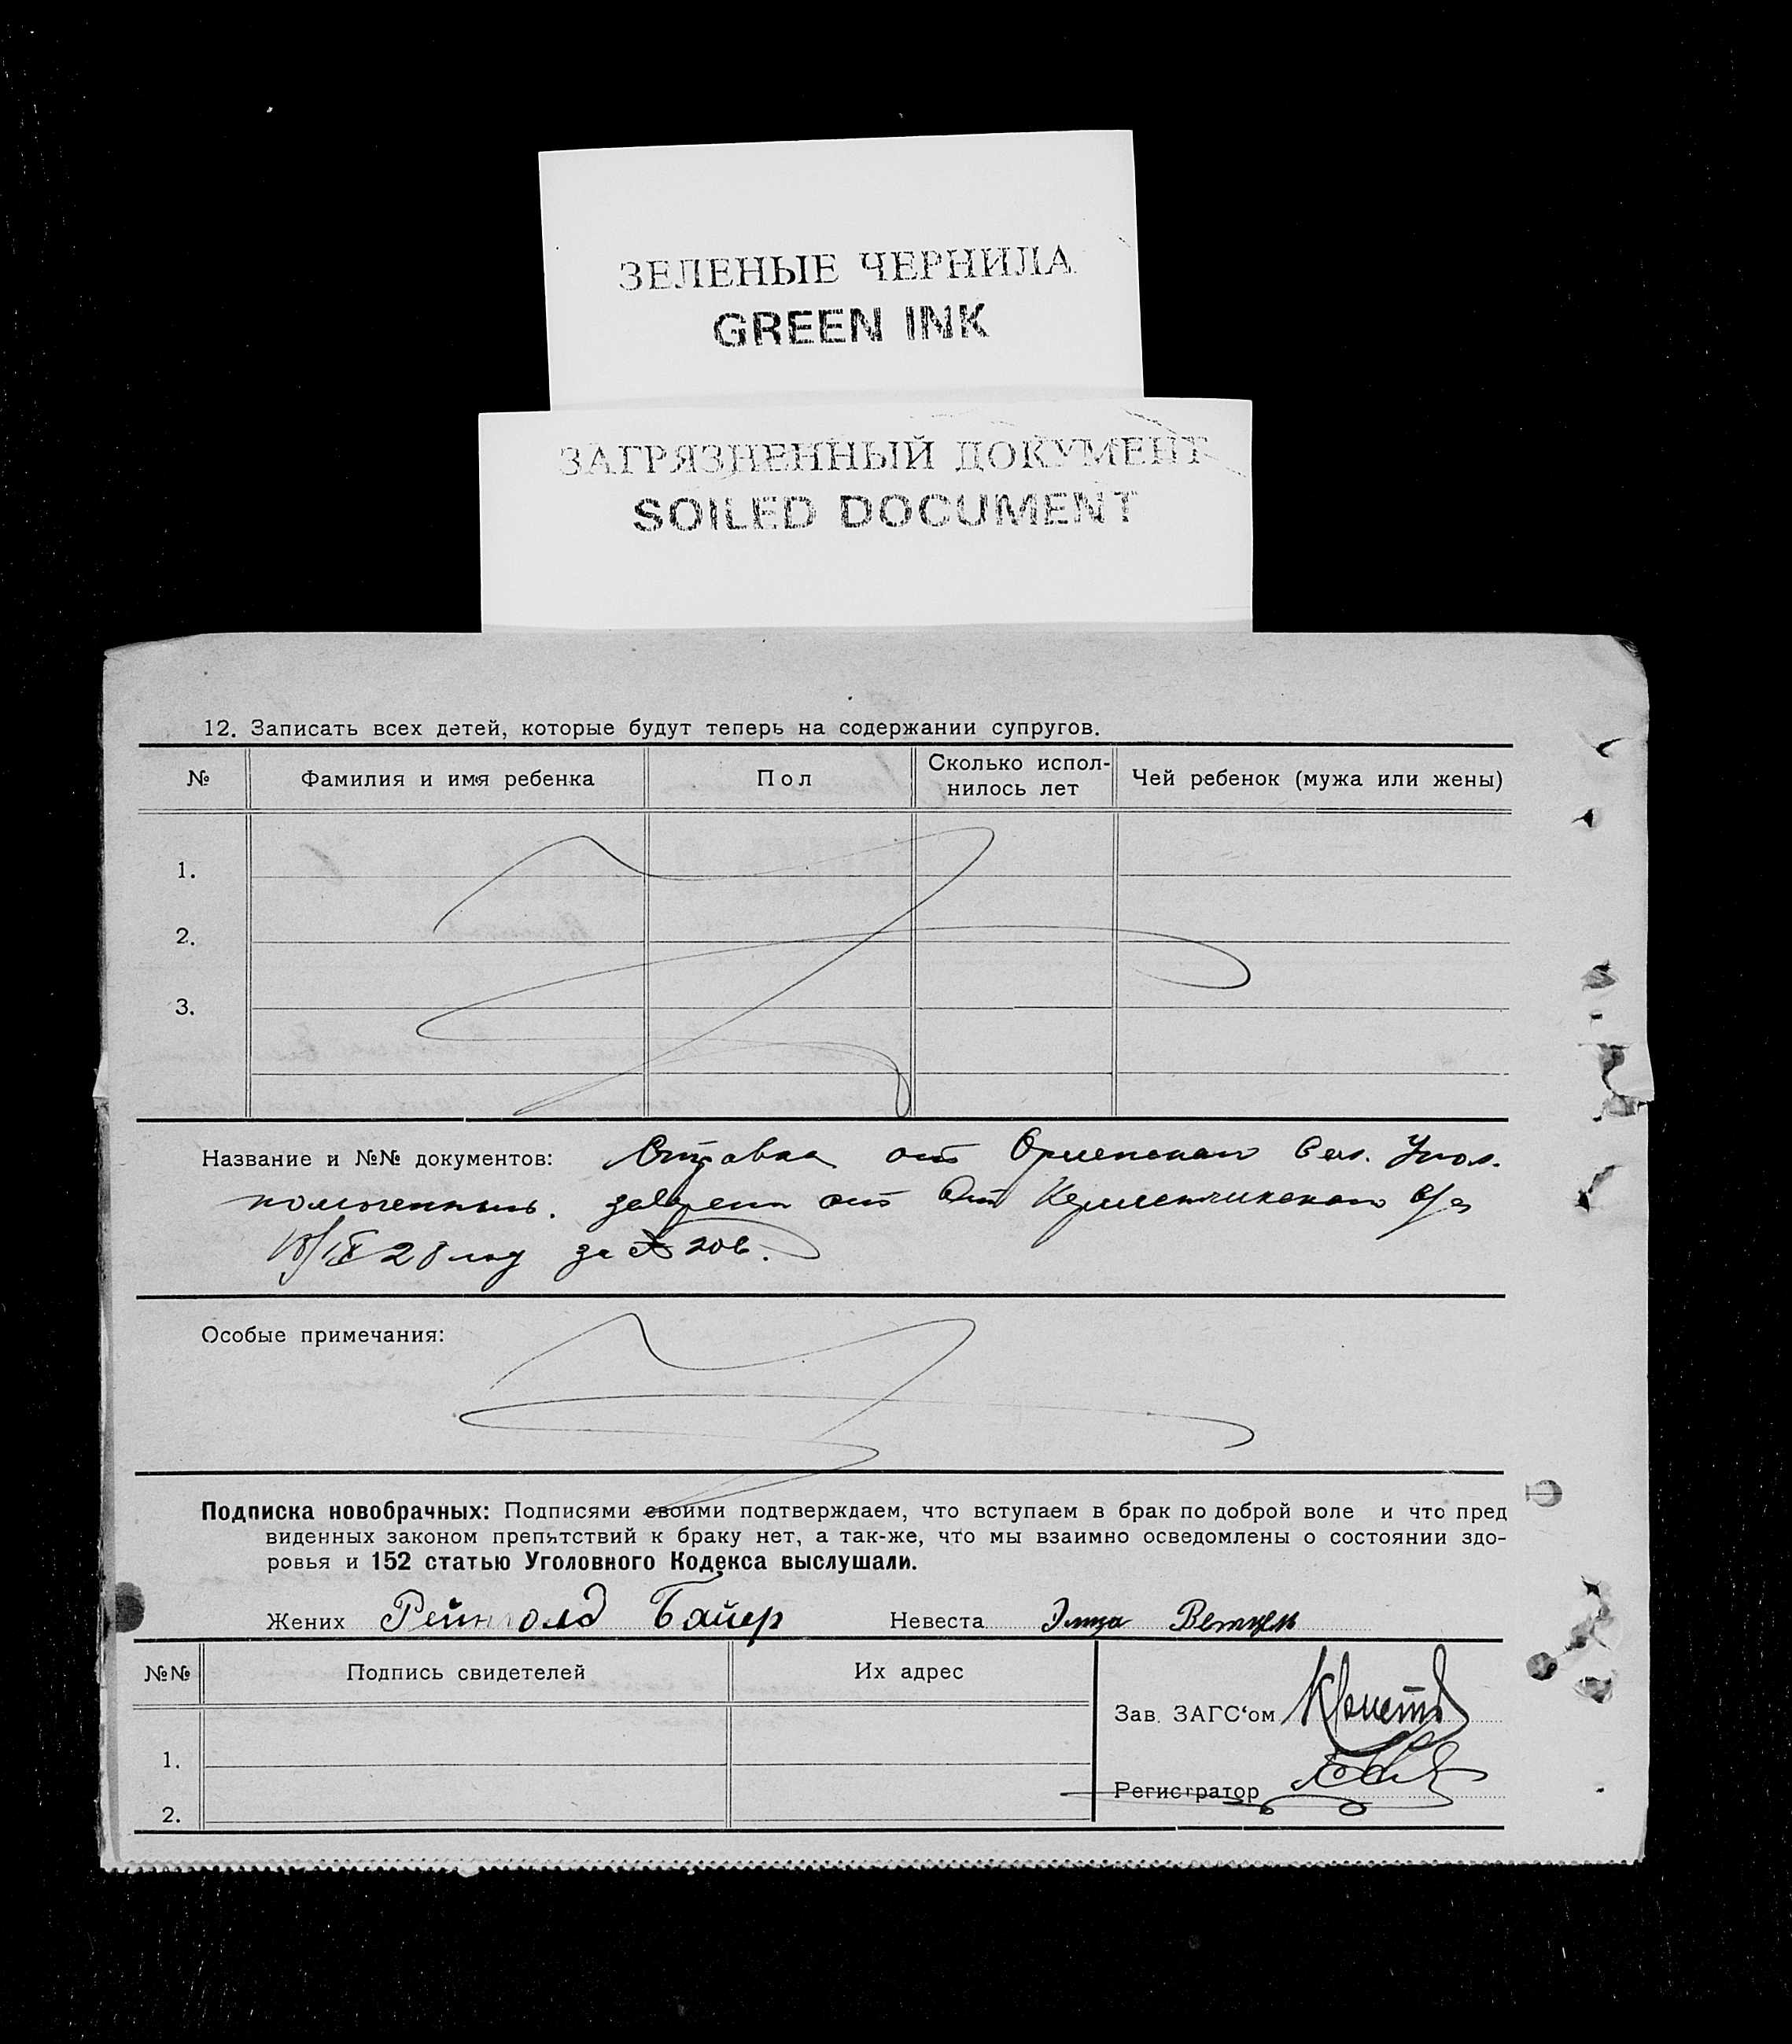 ЗЕЛЕНЫЕ ЧЕРНИЛА
GREEN INK
ЗАГРЯЗНЕННЫЙ ДОКУМЕНТ
SOILED DOCUMENT
12. Записать всех детей, которые будут теперь на содержании супругов.
№ Фамилия и имя ребенка Пол Сколько испол-нилось лет Чей ребенок (мужа или жены)
1.
2.
3.
Название и №№ документов: Справка от Сел. Упол.
от
18/IX 28 году за № 206.
Особые примечания:
Подписка новобрачных: Подписями своими подтверждаем, что вступаем в брак по доброй воле и что пред
виденных законом препятствий к браку нет, а так-же, что мы взаимно осведомлены о состоянии здо-
ровья и 152 статью Уголовного Кодекса выслушали.
Жених Рейнголд Байер Невеста Элиза Ветцель
№№ Подпись свидетелей Их адрес
Зав. ЗАГС‘ом
1.
Регистратор
2.